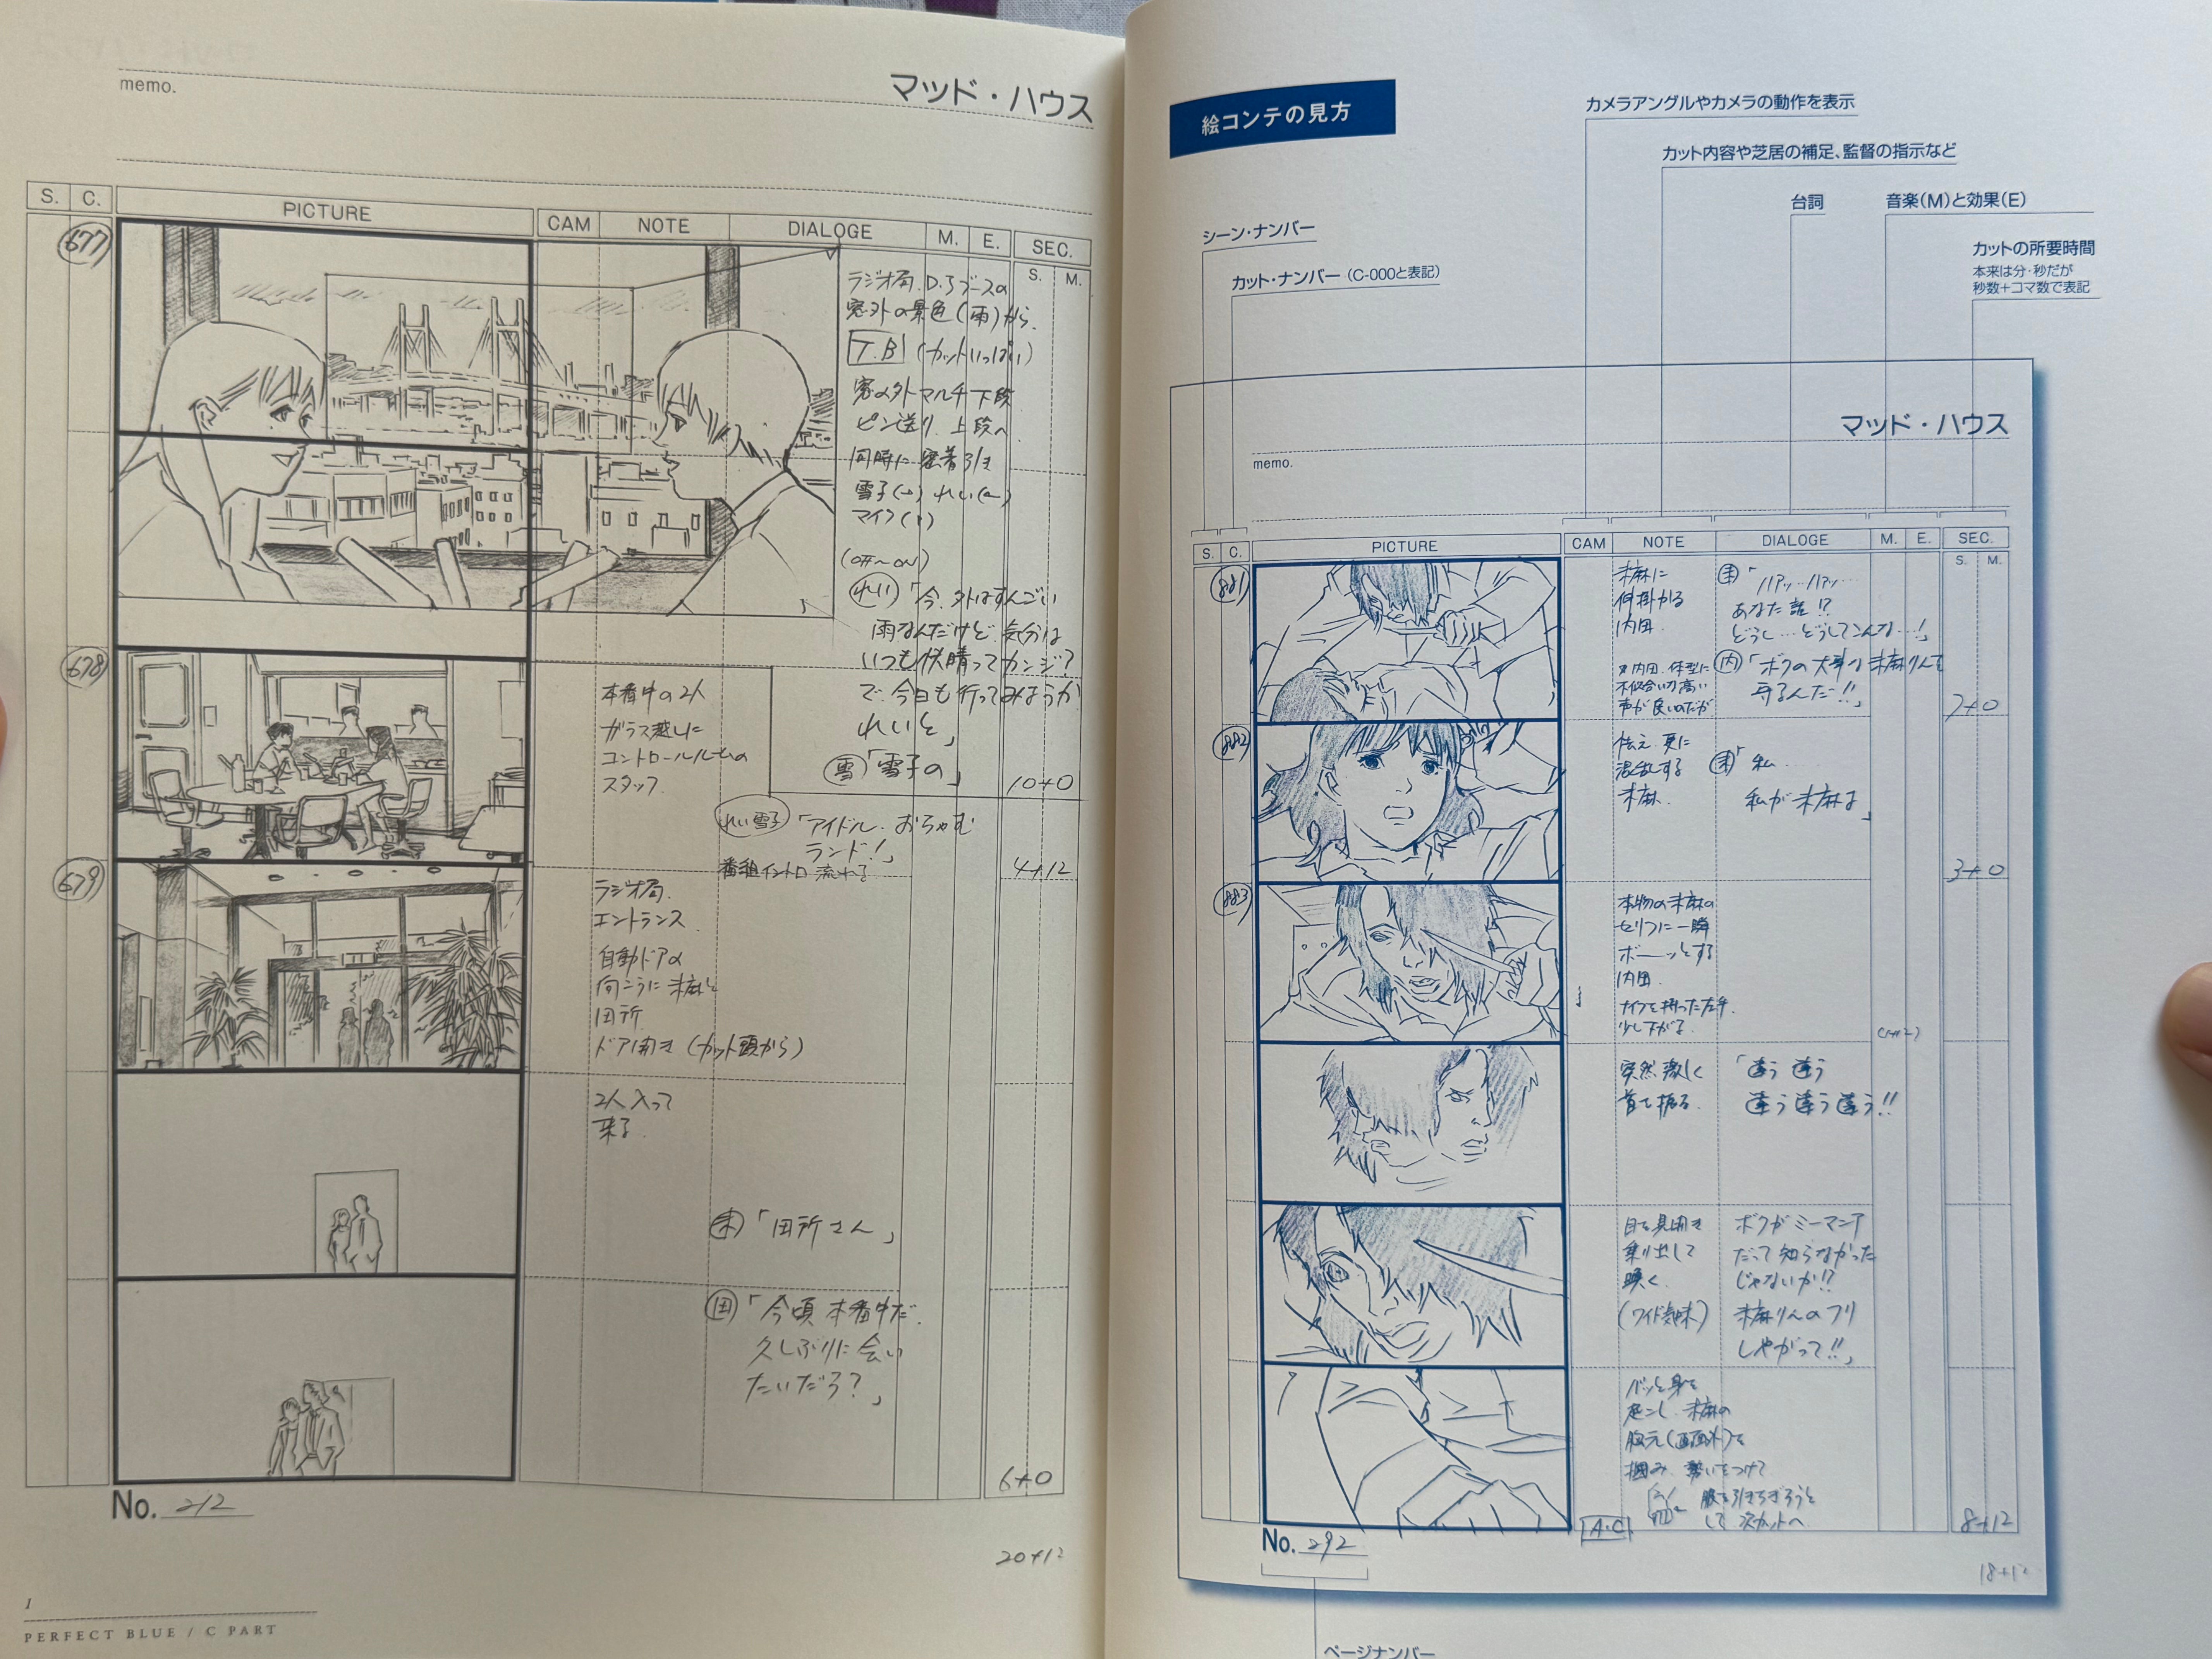 memo.
マッド・ハウス
S.
C.
PICTURE
CAM
NOTE
DIALOGE
M.
E.
SEC.
S.
M.
677
ラジオ局.D.Jブースの
窓外の景色(雨)から.
T.B (カットいっぱい)
窓の外マルチ下段
ピン送り.上段へ.
同時に密着引き
雪子(→) れい(←)
マイク(↓)
(OFF〜ON)
れい「今、外はすんごい
雨なんだけど、気分は
いつも快晴ってカンジ?
で、今日も行ってみようか
れいと」
雪「雪子の」
10+0
678
本番中の2人
ガラス越しに
コントロールルームの
スタッフ.
れい雪子「アイドル.おちゃむ
ランド!」
番組イントロ流れる
4+12
679
ラジオ局.
エントランス.
自動ドアの
向こうに未麻と
田所
ドア開き(カット頭から)
2人入って
来る.
未「田所さん」
田「今頃本番中だ.
久しぶりに会い
たいだろ?」
6+0
No. 212
20+12
1
PERFECT BLUE / C PART
絵コンテの見方
カメラアングルやカメラの動作を表示
カット内容や芝居の補足、監督の指示など
台詞
音楽(M)と効果(E)
シーン・ナンバー
カットの所要時間
本来は分・秒だが
秒数+コマ数で表記
カット・ナンバー(C-000と表記)
マッド・ハウス
memo.
S.
C.
PICTURE
CAM
NOTE
DIALOGE
M.
E.
SEC.
S.
M.
881
未麻に
伸掛かる
内田.
未「ハアッ…ハアッ…
あなた誰!?
どうし…どうしてこんな…!」
内「ボクの大事な未麻りんを
守るんだ!!」
内田.体型に
不似合いの高い
声が良いのだが
7+0
882
怯え.更に
混乱する
未麻.
未「私.
私が未麻よ」
3+0
883
本物の未麻の
セリフに一瞬
ボーッとする
内田.
ナイフを持った左手.
少し下がる.
(1+12)
突然激しく
首を振る.
「違う 違う
違う違う違う!!
目を見開き
乗り出して
喚く.
(ワイド気味)
ボクがミーマニア
だって知らなかった
じゃないか!?
未麻りんのフリ
しやがって!!」
バッと身を
起こし.未麻の
胸元(画面外)を
掴み.勢いをつけて
服を引きちぎろうと
して次カットへ.
A.C
8+12
No. 292
18+12
ページナンバー